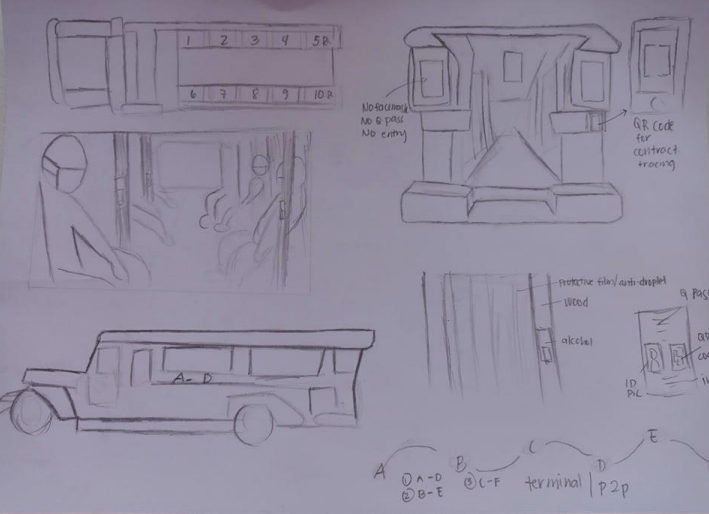 1 2 3 4 5R
6 7 8 9 10R
No facemask
No Q pass
No entry
QR code
for
contract
tracing
A - D
protective film/anti-droplet
wood
alcohol
Q Pas
ID
PIC
A B C D E
① A-D
② B-E
③ C-F
terminal | P2P